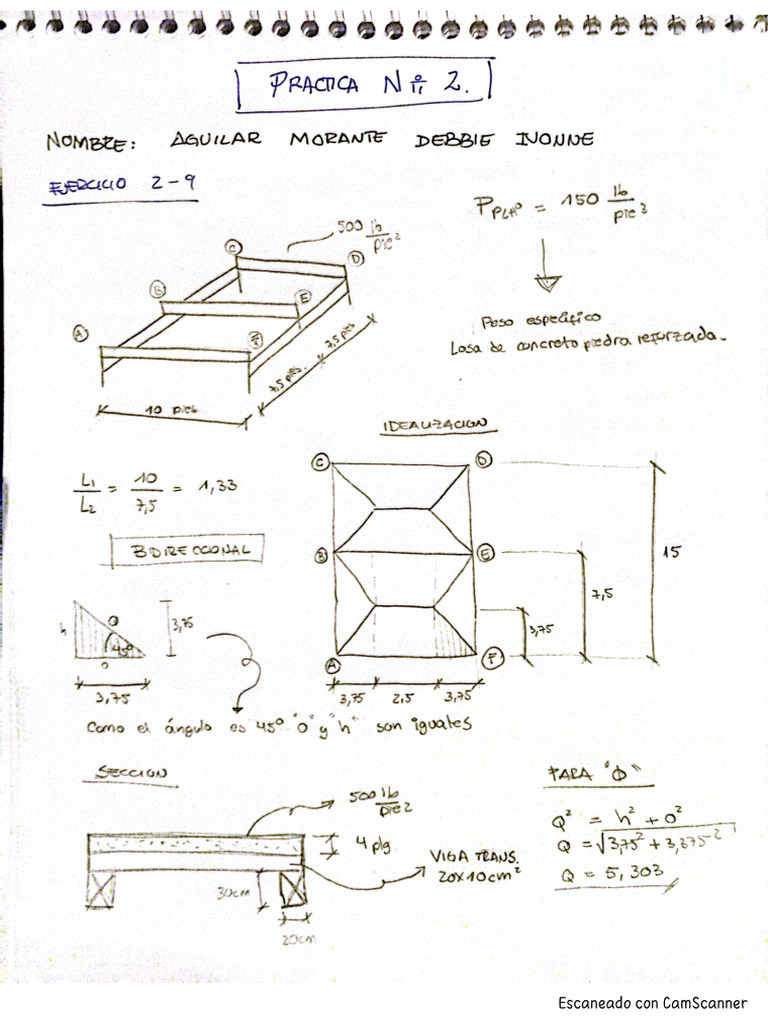 PRACTICA Nº 2.
NOMBRE: AGUILAR MORANTE DEBBIE IVONNE
EJERCICIO 2-9
500 lb/pie²
P PLHº = 150 lb/pie²
C
D
B
E
A
F
7,5 pies
7,5 pies.
10 pies.
Peso específico
Losa de concreto piedra reforzada.
IDEALIZACION
L1/L2 = 10/7,5 = 1,33
BIDIRECCIONAL
C
D
B
E
A
F
15
7,5
3,75
3,75 2,5 3,75
h
Q
45º
o
3,75
3,75
Como el ángulo es 45º "O" y "h" son iguales
SECCION
500 lb/pie2
4 plg.
VIGA TRANS.
20x10cm²
30cm
20cm
PARA "Φ"
Q² = h² + o²
Q = √3,75² + 3,375²
Q = 5,303
Escaneado con CamScanner